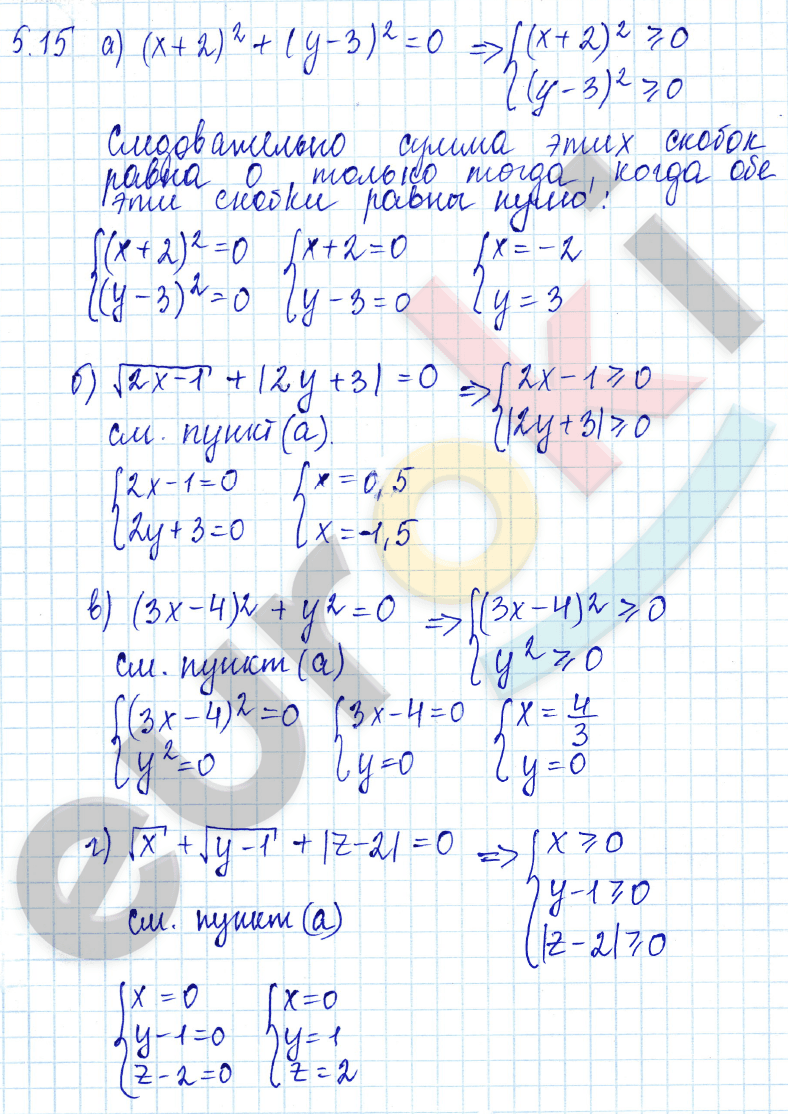 5.15 а) (x+2)² + (y-3)² = 0 => { (x+2)² ⩾ 0
(y-3)² ⩾ 0
Следовательно сумма этих скобок
равна 0, только тогда, когда обе
эти скобки равны нулю:
{ (x+2)² = 0 { x+2 = 0 { x = -2
(y-3)² = 0 y-3 = 0 y = 3
б) √2x-1 + |2y+3| = 0 => { 2x-1 ⩾ 0
|2y+3| ⩾ 0
см. пункт (а).
{ 2x-1=0 { x = 0,5
2y+3=0 x = -1,5
в) (3x-4)² + y² = 0 => { (3x-4)² ⩾ 0
y² ⩾ 0
см. пункт (а)
{ (3x-4)² = 0 { 3x-4=0 { x = 4/3
y² = 0 y=0 y=0
г) √x + √y-1 + |z-2| = 0 => { x ⩾ 0
y-1 ⩾ 0
|z-2| ⩾ 0
см. пункт (а)
{ x = 0 { x=0
y-1=0 y=1
z-2=0 z=2
euroki